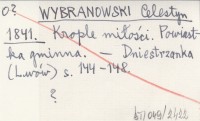 0? WYBRANOWSKI Celestyn
1841. Krople miłości. Powiast-
ka gminna. — Dniestrzanka
(Lwów) s. 144-148.
?